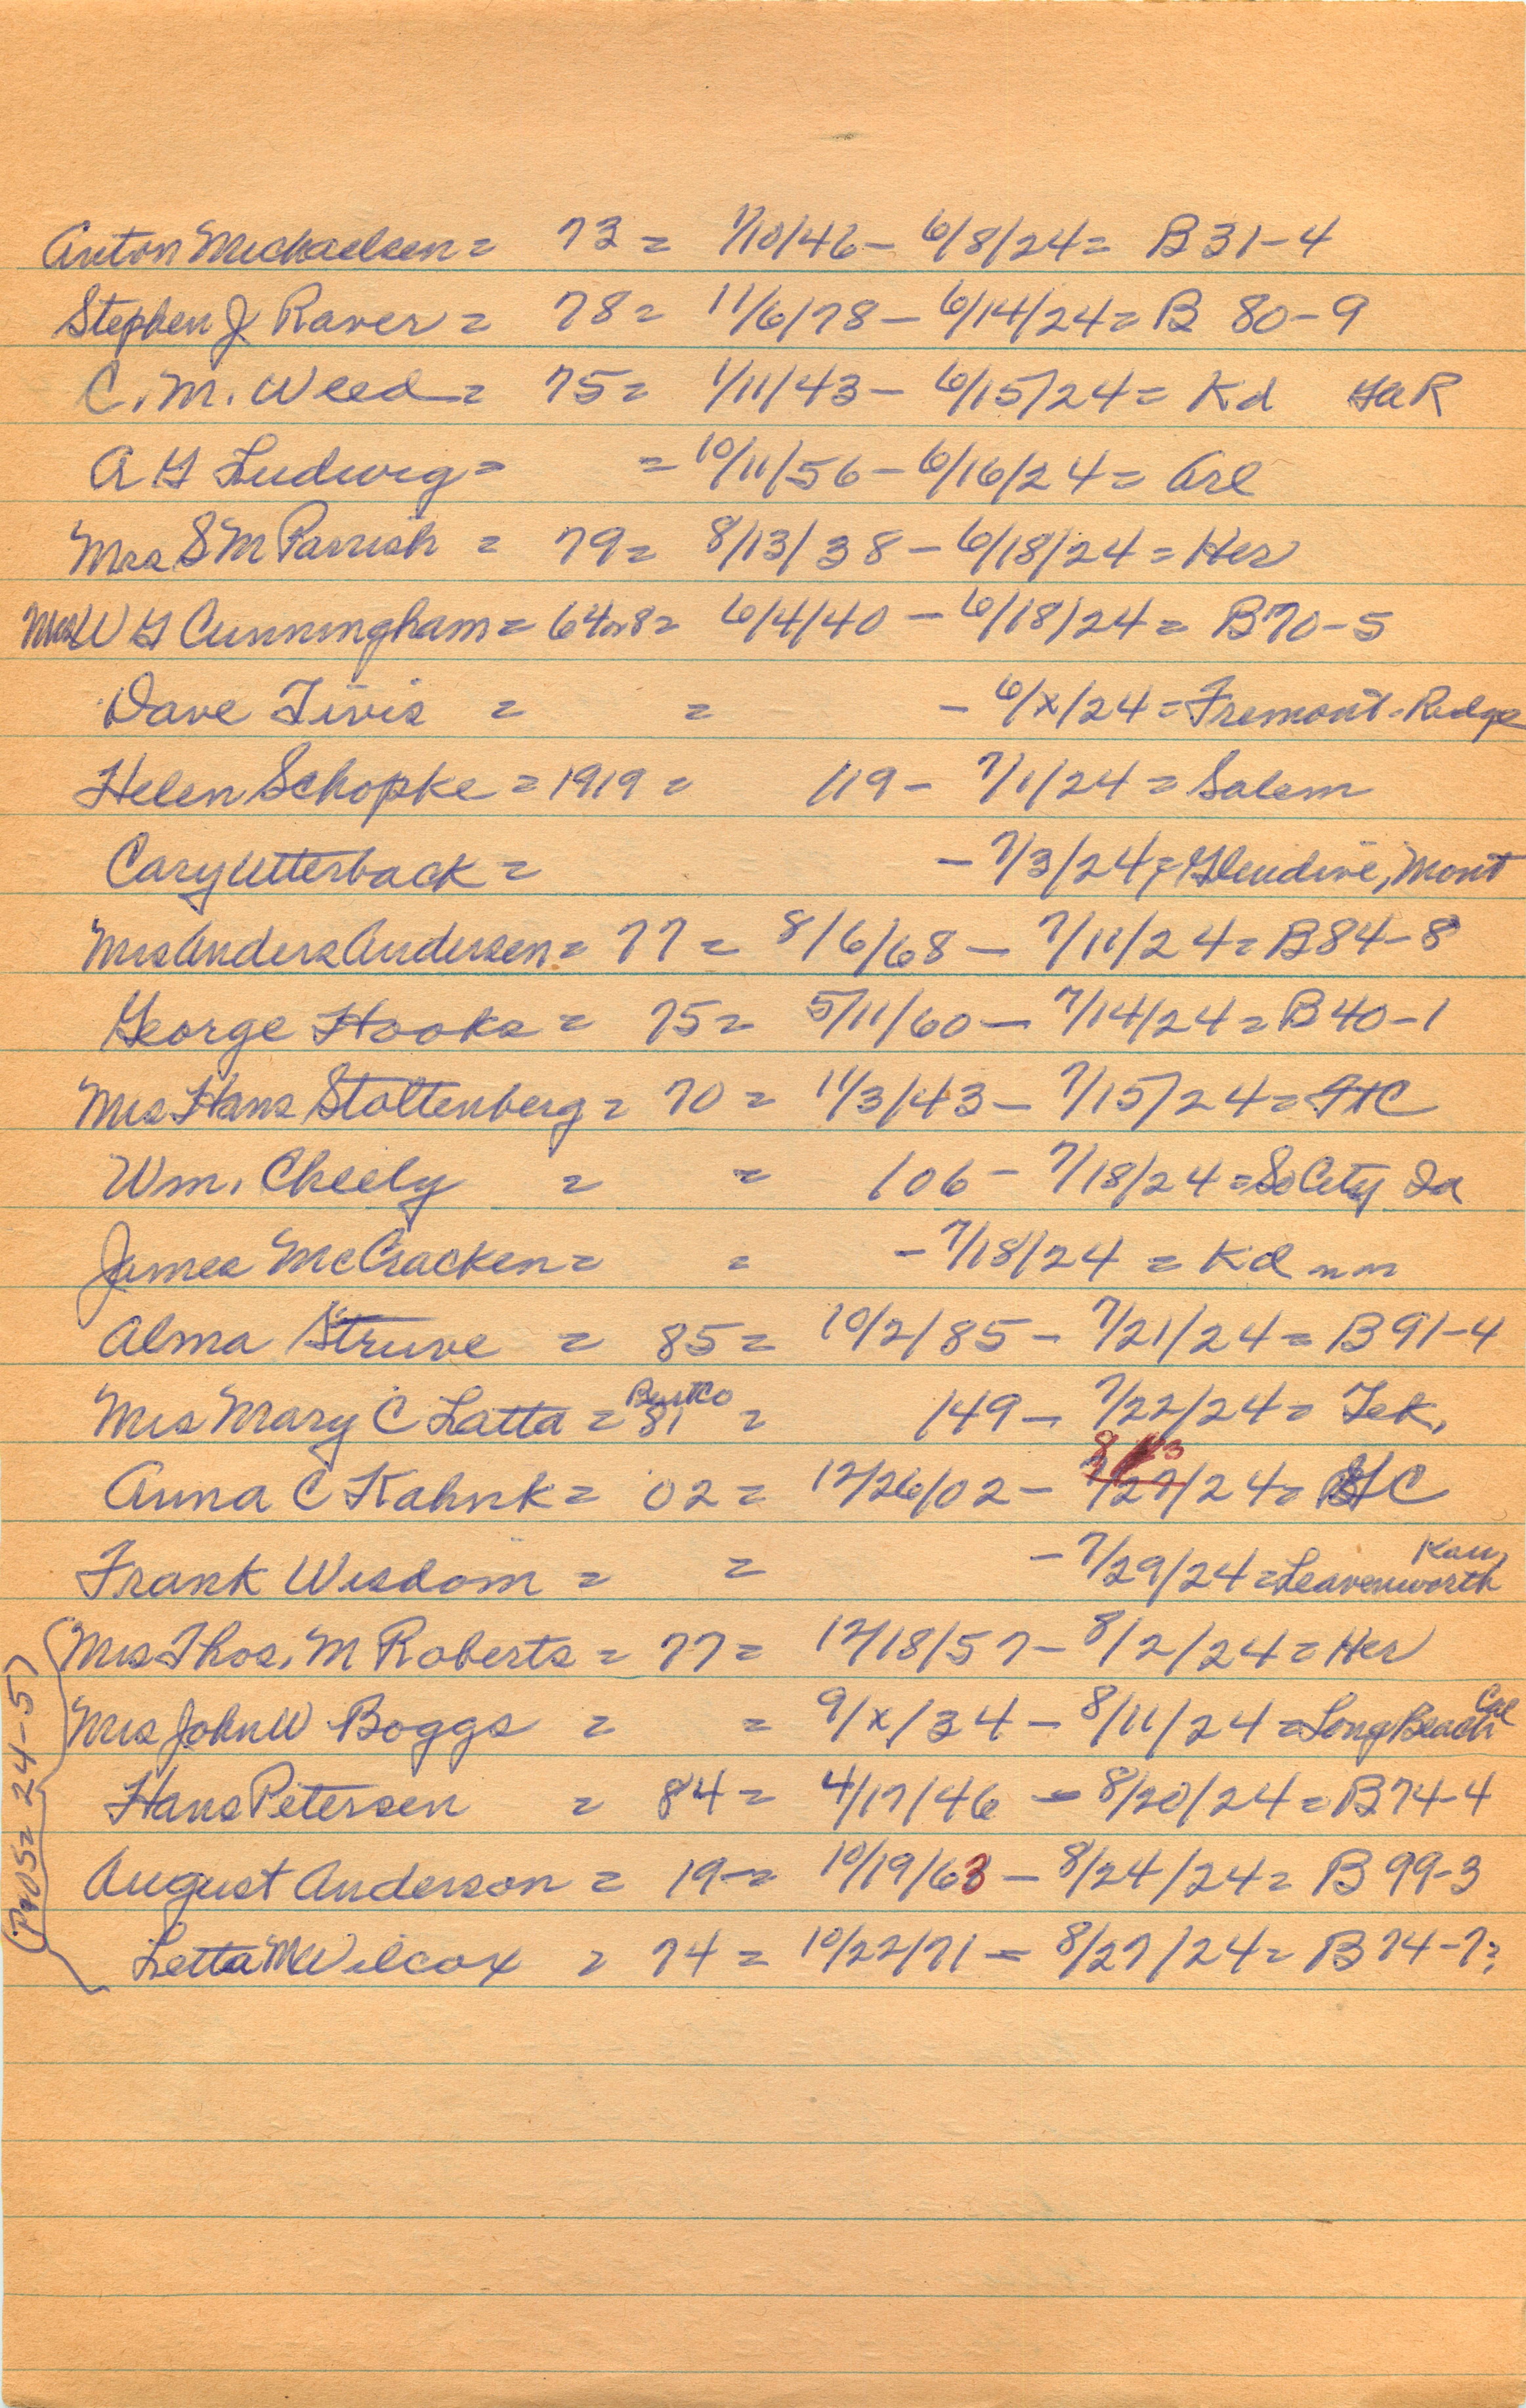 Anton Michaelsen = 73 = 1/10/46 - 6/8/24 = B 31-4
Stephen J Raver = 78 = 11/6/78 - 6/14/24 = B 80-9
C. M. Weed = 75 = 1/11/43 - 6/15/24 = Kd GAR
A G Ludwig = = 10/11/56 - 6/16/24 = Arl
Mrs S M Parrish = 79 = 8/13/38 - 6/18/24 = Her
Mrs W G Cunningham = 64 or 8 = 6/4/40 - 6/18/24 = B 70-5
Dave Tivis = = - 6/x/24 = Fremont - Ridge
Helen Schopke = 1919 = /19 - 7/1/24 = Salem
Cary Utterback = - 7/3/24 = Glendive, Mont
Mrs Anders Andersen = 77 = 8/6/68 - 7/11/24 = B 84-8
George Hooks = 75 = 5/11/60 - 7/14/24 = B 40-1
Mrs Hans Stoltenberg = 70 = 11/3/43 - 7/15/24 = HC
Wm. Cheely = = /06 - 7/18/24 = So City Ia
James McCracken = = - 7/18/24 = Kd nm
Alma Struve = 85 = 10/2/85 - 7/21/24 = B 91-4
Mrs Mary C Latta = Burt Co 81 = /49 - 7/22/24 = Tek.
Anna C Kahnk = 02 = 12/26/02 - 7/27/24 = HC
Frank Wisdom = = - 7/29/24 = Leavenworth Kan,
Mrs Thos. M Roberts = 77 = 12/18/57 - 8/2/24 = Her
Mrs John W Boggs = = 9/x/34 - 8/11/24 = Long Beach Cal
Hans Petersen = 84 = 4/17/46 - 8/20/24 = B 74-4
August Anderson = 19 = 10/19/63 - 8/24/24 = B 99-3
Letta M Wilcox = 74 = 10/22/71 - 8/27/24 = B 74-7?
24-5)